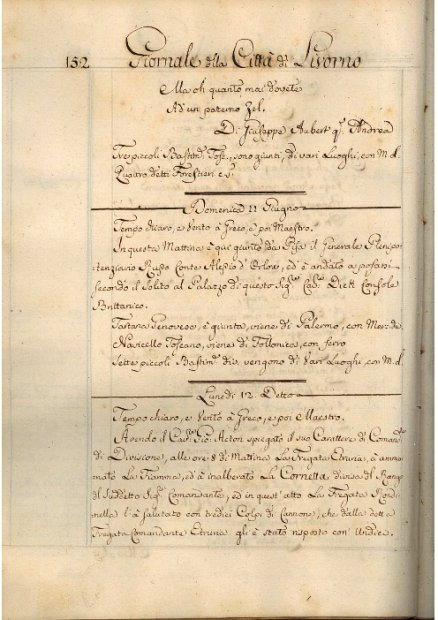 152
Giornale della Città di Livorno
Ma oh quanto mai dovete
Ad un paterno Zel.
Di Giuseppe Aubert qm. Andrea
Tre piccoli Bastim.ti Tos., sono giunti, di vari Luoghi, con M. d.
Quattro detti Forestieri e. s.
Domenica 11 Giugno
Tempo chiaro, e Vento à Greco, e poi Maestro.
In questa Mattina è qui giunto da Pisa il Generale Plenipo-
tenziario Russo Conte Alessio d'Orlow, ed è andato a posarsi
secondo il solito al Palazzo di questo Sig.re Cav. Dick Console
Brittanico.
Tartana Genovese, è giunta, viene di Palermo, con Mer: de
Navicello Toscano, viene di Follonica, con ferro
Sette piccoli Bastim.ti div. vengono di Vari Luoghi, con M. d.
Lunedi 12 Detto
Tempo chiaro, e Vento à Greco, e poi Maestro.
Avendo il Cav. Gio: Acton spiegato il suo Carattere di Coman.te
di Divisione, alle ore 8 di Mattina La Fregata Etruria, à ammai-
nato La Fiamma, ed à inalberato La Cornetta divisa del Rango
del Suddetto Sig.re Comandante, ed in quest'atto La Fregata
l'à salutato con tredici Colpi di Cannone, che dalla detta
Fregata Comandante Etruria gli è stato risposto con Undici.